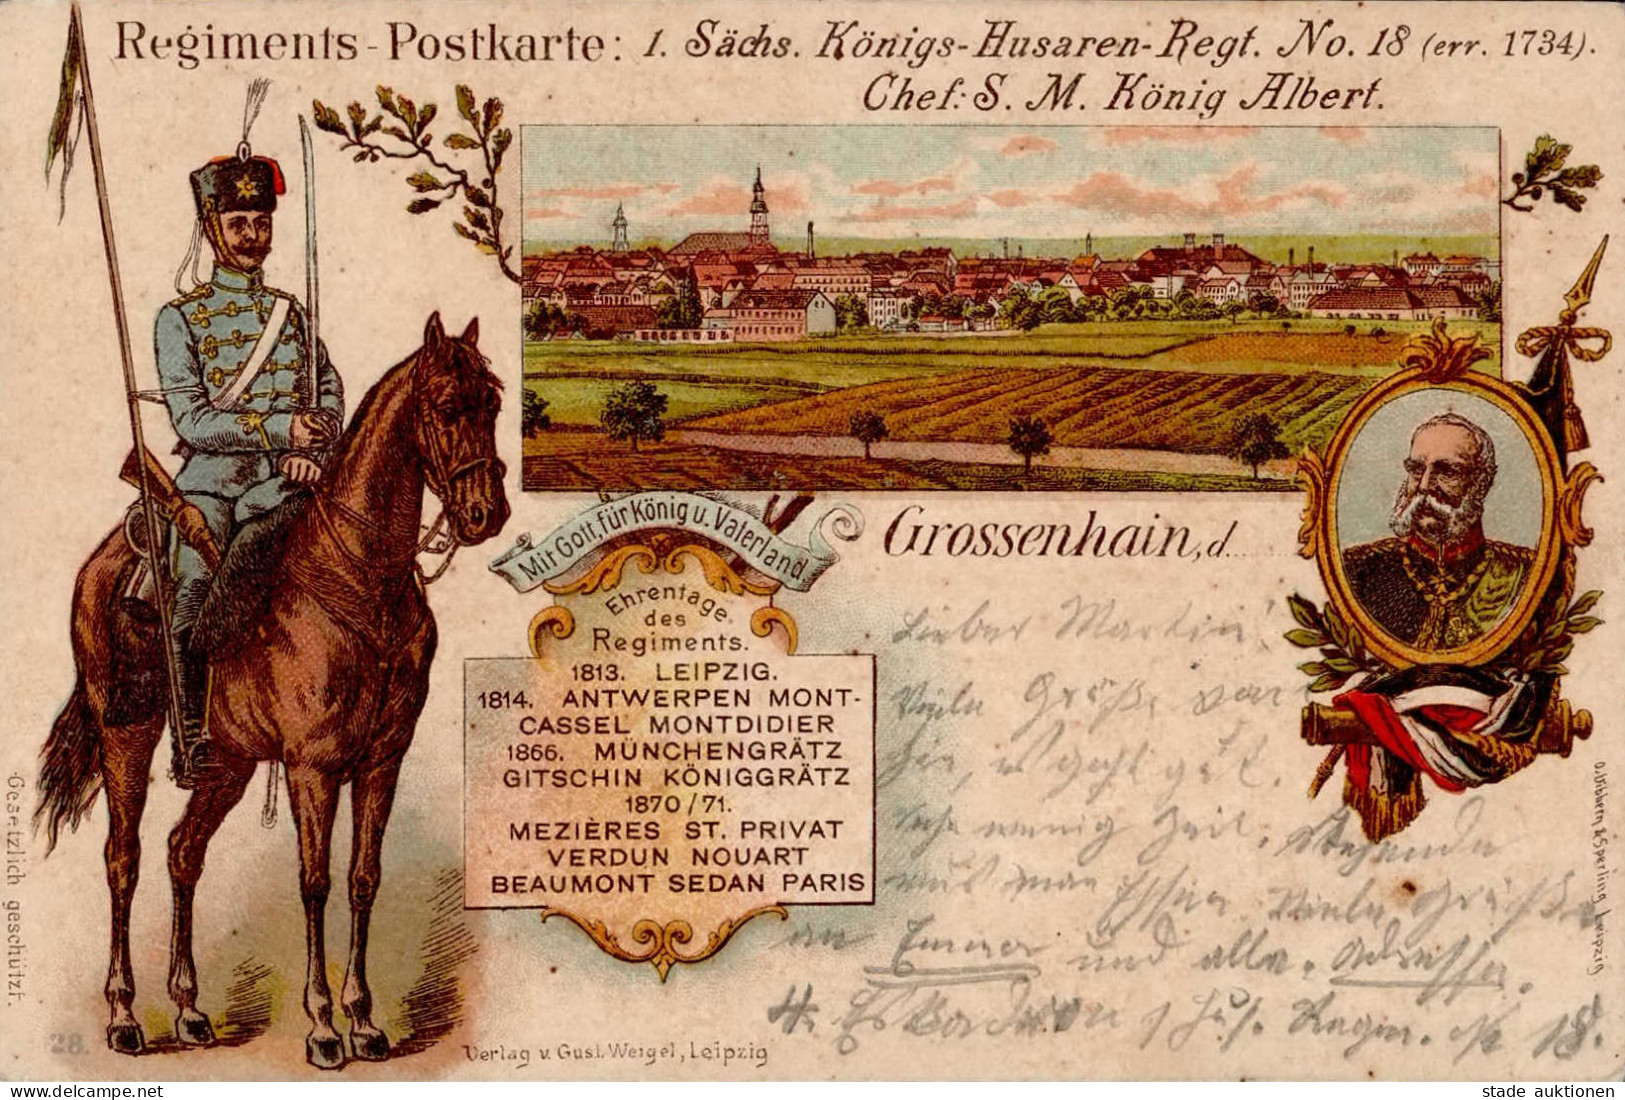 Regiments-Postkarte: 1. Sächs. Königs-Husaren-Regt. No. 18 (err. 1734).
Chef: S. M. König Albert.
Mit Gott, für König u. Vaterland
Ehrentage
des
Regiments.
1813. LEIPZIG.
1814. ANTWERPEN MONT-
CASSEL MONTDIDIER
1866. MÜNCHENGRÄTZ
GITSCHIN KÖNIGGRÄTZ
1870/71.
MEZIÈRES ST. PRIVAT
VERDUN NOUART
BEAUMONT SEDAN PARIS
Grossenhain, d.
Lieber Martin!
Viele Grüße von
hier, es geht gut.
sehr wenig Zeit.
muß man Viele Grüße
an Emma und alle. Adresse.
4. Eskadron Hus. Regm. No 18.
Gesetzlich geschützt.
28.
Verlag v. Gust. Weigel, Leipzig
Sperling Leipzig
www.delcampe.net
stade auktionen